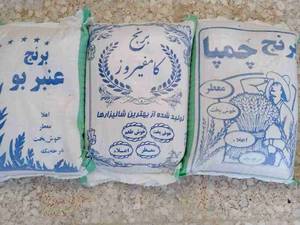 برنج
عنبر بو
اعلاء
معطر
خوش پخت
درجه یک
برنج
کامفیروز
تولید شده از بهترین شالیزارها
خوش پخت
خوش طعم
معطر
اعلاء
برنج چمپا
معطر
خوش پخت
اعلاء